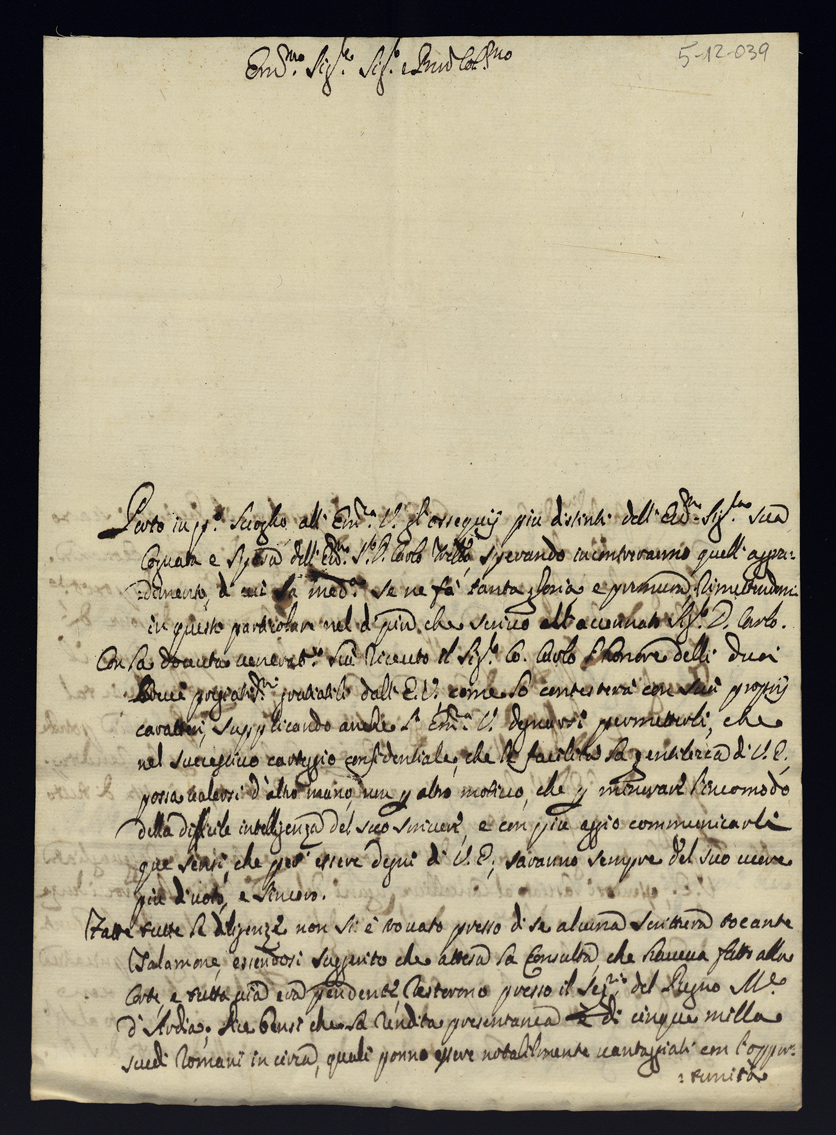 5-12-039
Em.mo Sig.re Sig.r e Pron Col.mo
Porto in pp.o Scioglio all' Em.a V. gl'ossequij piu distinti dell' Sig.ra sua
Cognata e Sposa dell' D. Carlo sperando incontreranno quell' aggra=
=dimento, di cui la med.a se ne fà tanta gloria e premura,
in questo particolare nel di piu che scrivo all' accennato Sig.r D. Carlo.
Con la dovuta venerat.ne hà ricevuto il Sig.r Co. Carlo l'honore delli duoi
pregiatis.mi dall' E. V. come lo contesterà con suoi proprij
caratteri, supplicando anche l' Em.a V. degnarsi permetterli, che
nel successivo carteggio confidentiale, che le facilita la gentilezza di V. E.
possa valersi d'altro mano, non p altro motivo, che p minorarle l'incomodo
della difficile intelligenza del suo scrivere, e con piu aggio communicarli
que sensi, che per essere degni di V. E., saranno sempre del suo cuore
piu divoto, e sincero.
Fatte tutte le diligenze non si è trovato presso di se alcuna scrittura toccante
Talamone, essendosi suggerito che attesa la Consulta, che haveva fatto alla
Corte, e tutta via era pendente, restorono presso il Seg.rio del Regno M.e
d'Ardia. Dice bensi che la rendita presentanea è di cinque milla
scudi Romani in circa, quali ponno essere notabilmente vantaggiati con l'oppor=
=tunità